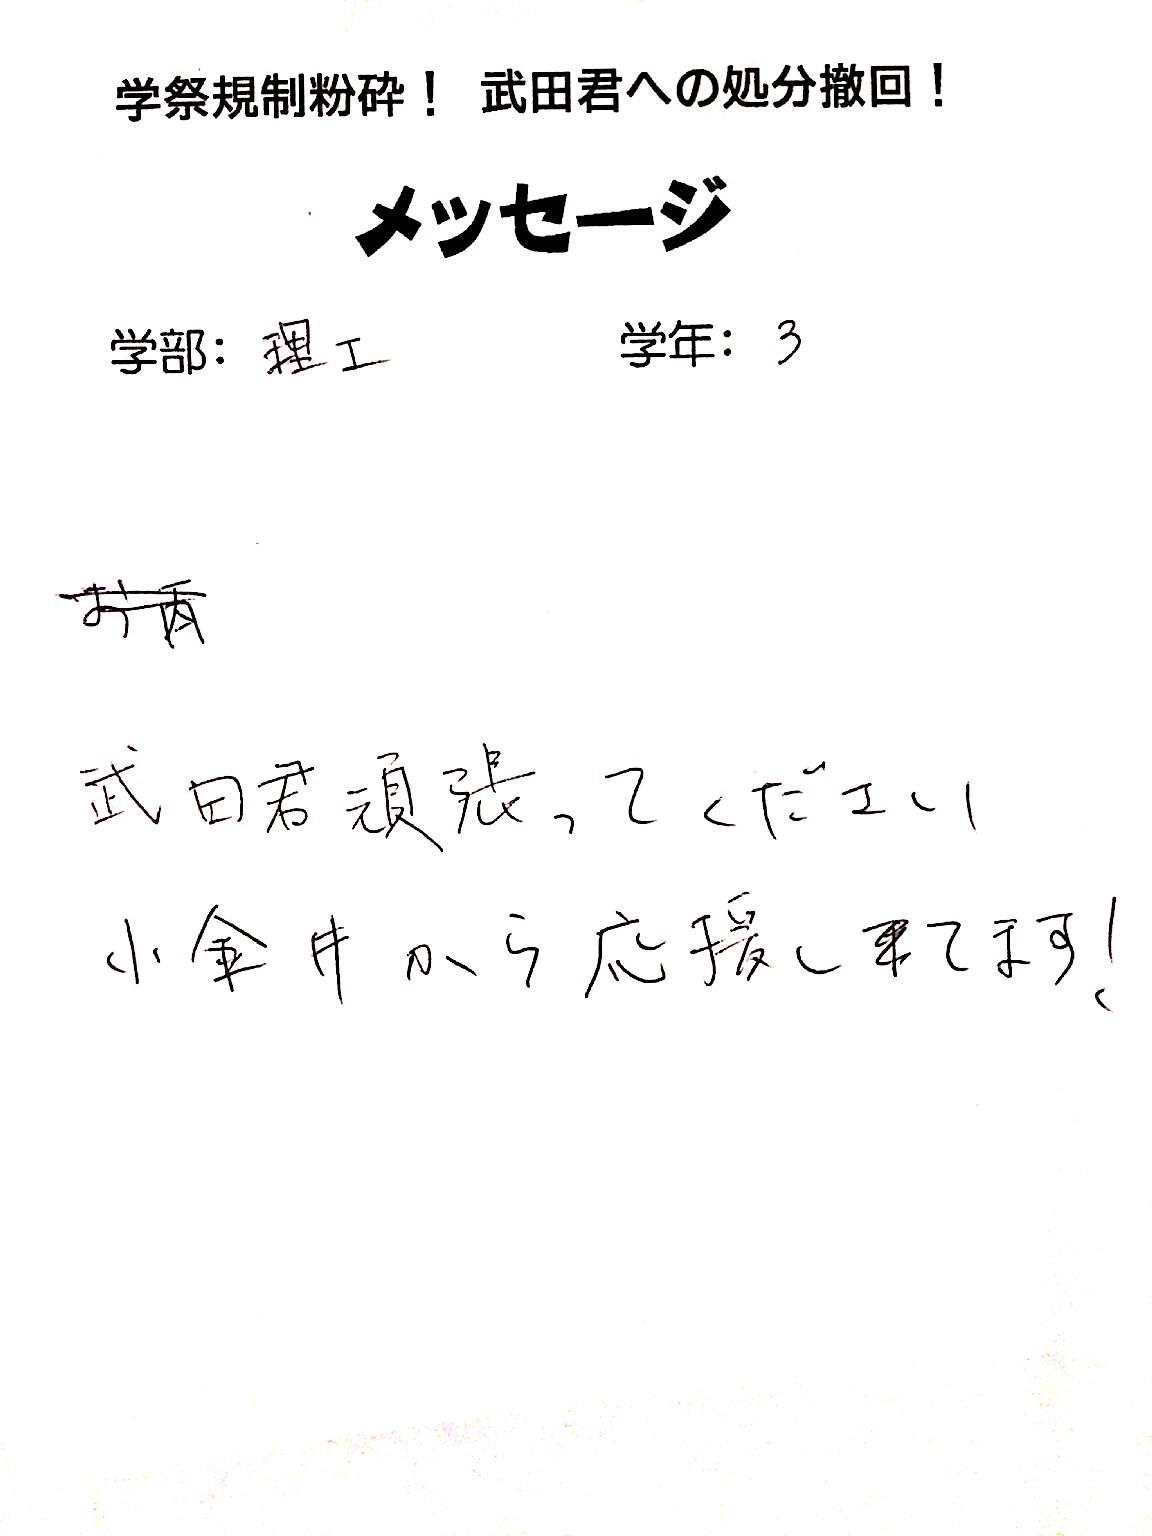 学祭規制粉砕！ 武田君への処分撤回！
メッセージ
学部： 理工 学年： 3
武田君頑張ってください
小金井から応援し来てます！